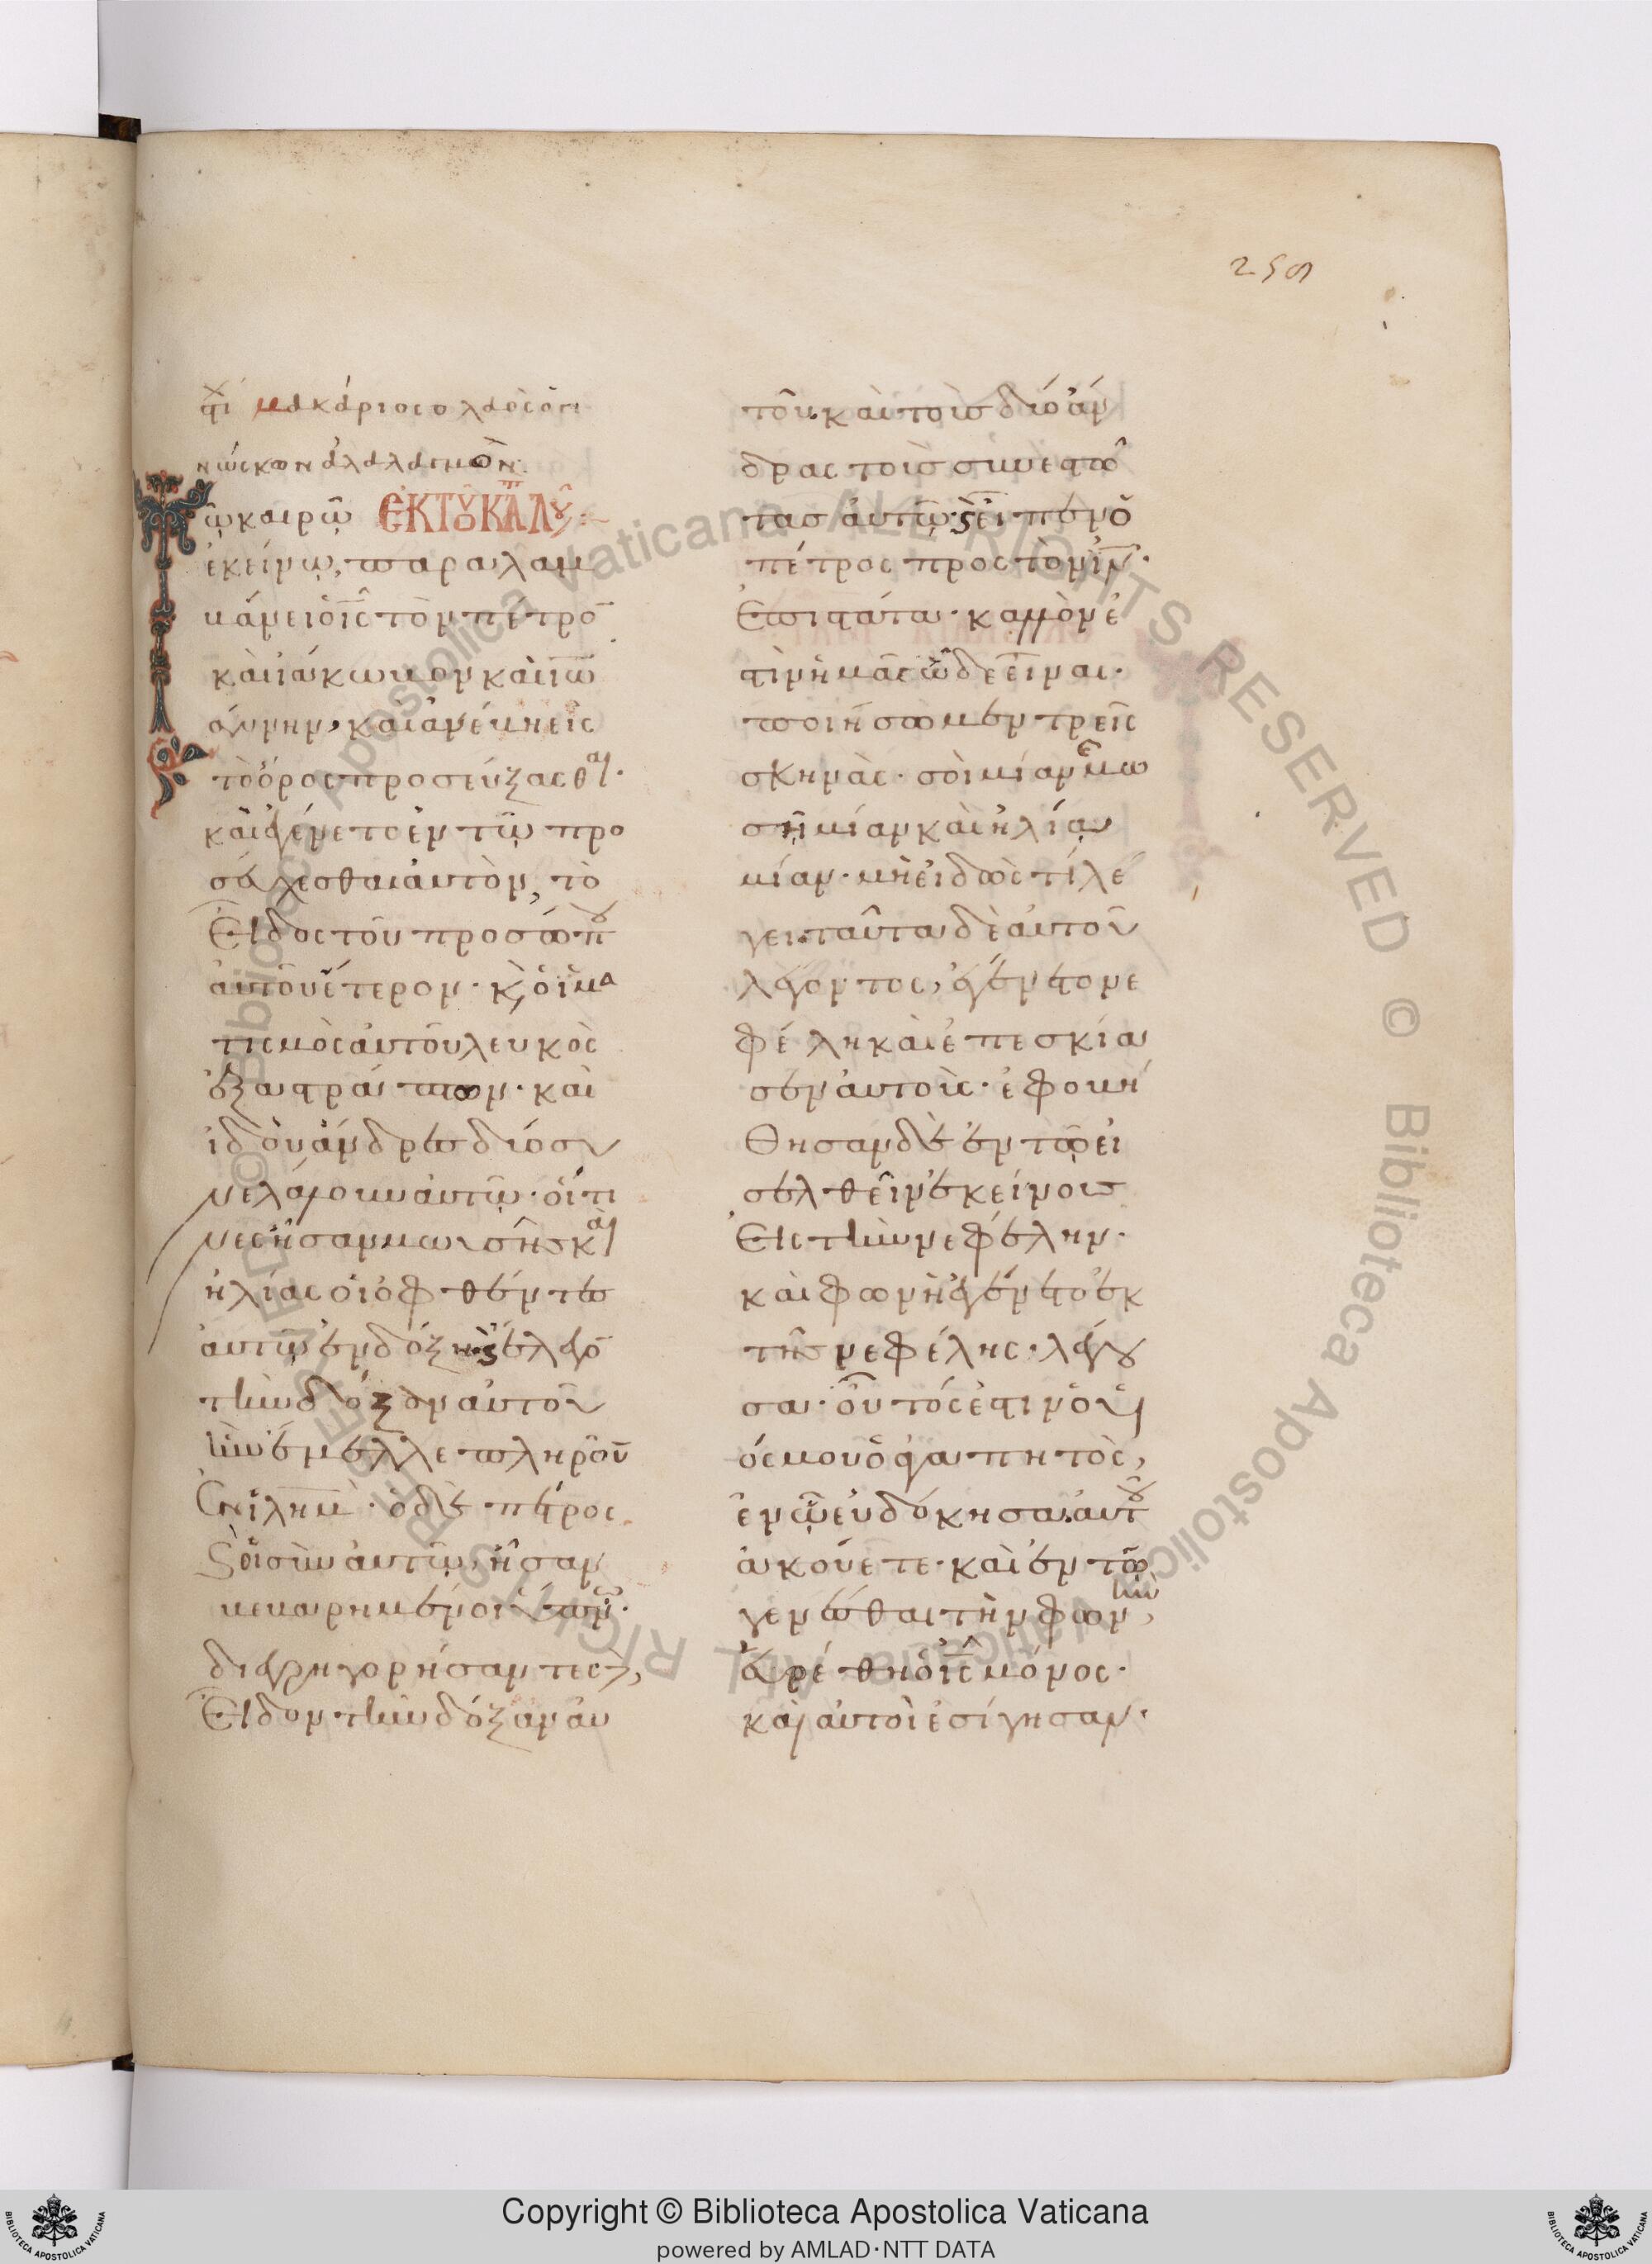 259
στιχ μακάριος ὁ λαὸς ὁ γι
νώσκων ἀλαλαγμὸν.
Τῷ καιρῷ ἘΚ ΤΟΥ Κ ΛΟΥ
ἐκείνῳ, παραλαμ
βάνει ὁ ις τὸν πέτρον
καὶ ϊάκωβον καὶ ϊω
άννην, καὶ ἀνέβη εἰς
τὸ ὄρος προσεύξασθαι.
καὶ ἐγένετο ἐν τῷ προ
σεύχεσθαι αὐτὸν, τὸ
εἶδος τοῦ προσώπου
αὐτοῦ ἕτερον. καὶ ὁ ἱμα
τισμὸς αὐτοῦ λευκὸς
ἐξαστράπτων. καὶ
ἰδοὺ ἄνδρες δύο συ
νελάλουν αὐτῷ. οἵτι
νες ἦσαν μωυσῆς καὶ
ἠλίας οἳ ὀφθέντες
αὐτῷ ἐν δόξη. καὶ ἔλεγον
τὴν δόξαν αὐτοῦ
ἣν ἔμελλε πληροῦν
ἐν ϊλημ. ὁ δὲ πέτρος
καὶ οἱ σὺν αὐτῷ, ἦσαν
βεβαρημένοι ὕπνῳ.
διαγρηγορήσαντες δὲ,
εἶδον τὴν δόξαν αὐ
τοῦ. καὶ τοὺς δύο ἄν
δρας τοὺς συνεστῶ
τας αὐτῷ. καὶ εἶπεν ὁ
πέτρος πρὸς τὸν ιν.
ἐπιστάτα. καλὸν ἐ
στὶν ἡμᾶς ὧδε εἶναι.
ποιήσωμεν τρεῖς
σκηνὰς. σοὶ μίαν μω
σῆ μίαν καὶ ἠλίᾳ
μίαν. μὴ εἰδὼς τί λέ
γει. ταῦτα δὲ αὐτοῦ
λέγοντος, ἐγένετο νε
φέλη καὶ ἐπεσκία
σεν αὐτοὺς. ἐφοβή
θησαν δὲ ἐν τῷ εἰ
σελθεῖν ἐκείνους
εἰς τὴν νεφέλην.
καὶ φωνὴ ἐγένετο ἐκ
τῆς νεφέλης. λέγου
σα. οὗτός ἐστιν ὁ υἱ
ός μου ὁ ἀγαπητὸς,
ἐν ᾧ εὐδόκησα. αὐτοῦ
ἀκούετε. καὶ ἐν τῷ
γενέσθαι τὴν φωνὴν,
εὑρέθη ὁ ις μόνος.
καὶ αὐτοὶ ἐσίγησαν.
© Biblioteca Apostolica Vaticana ALL RIGHTS RESERVED © Biblioteca Apostolica Vaticana ALL RIGHTS RESERVED
Copyright © Biblioteca Apostolica Vaticana
powered by AMLAD·NTT DATA
BIBLIOTECA APOSTOLICA VATICANA
BIBLIOTECA APOSTOLICA VATICANA